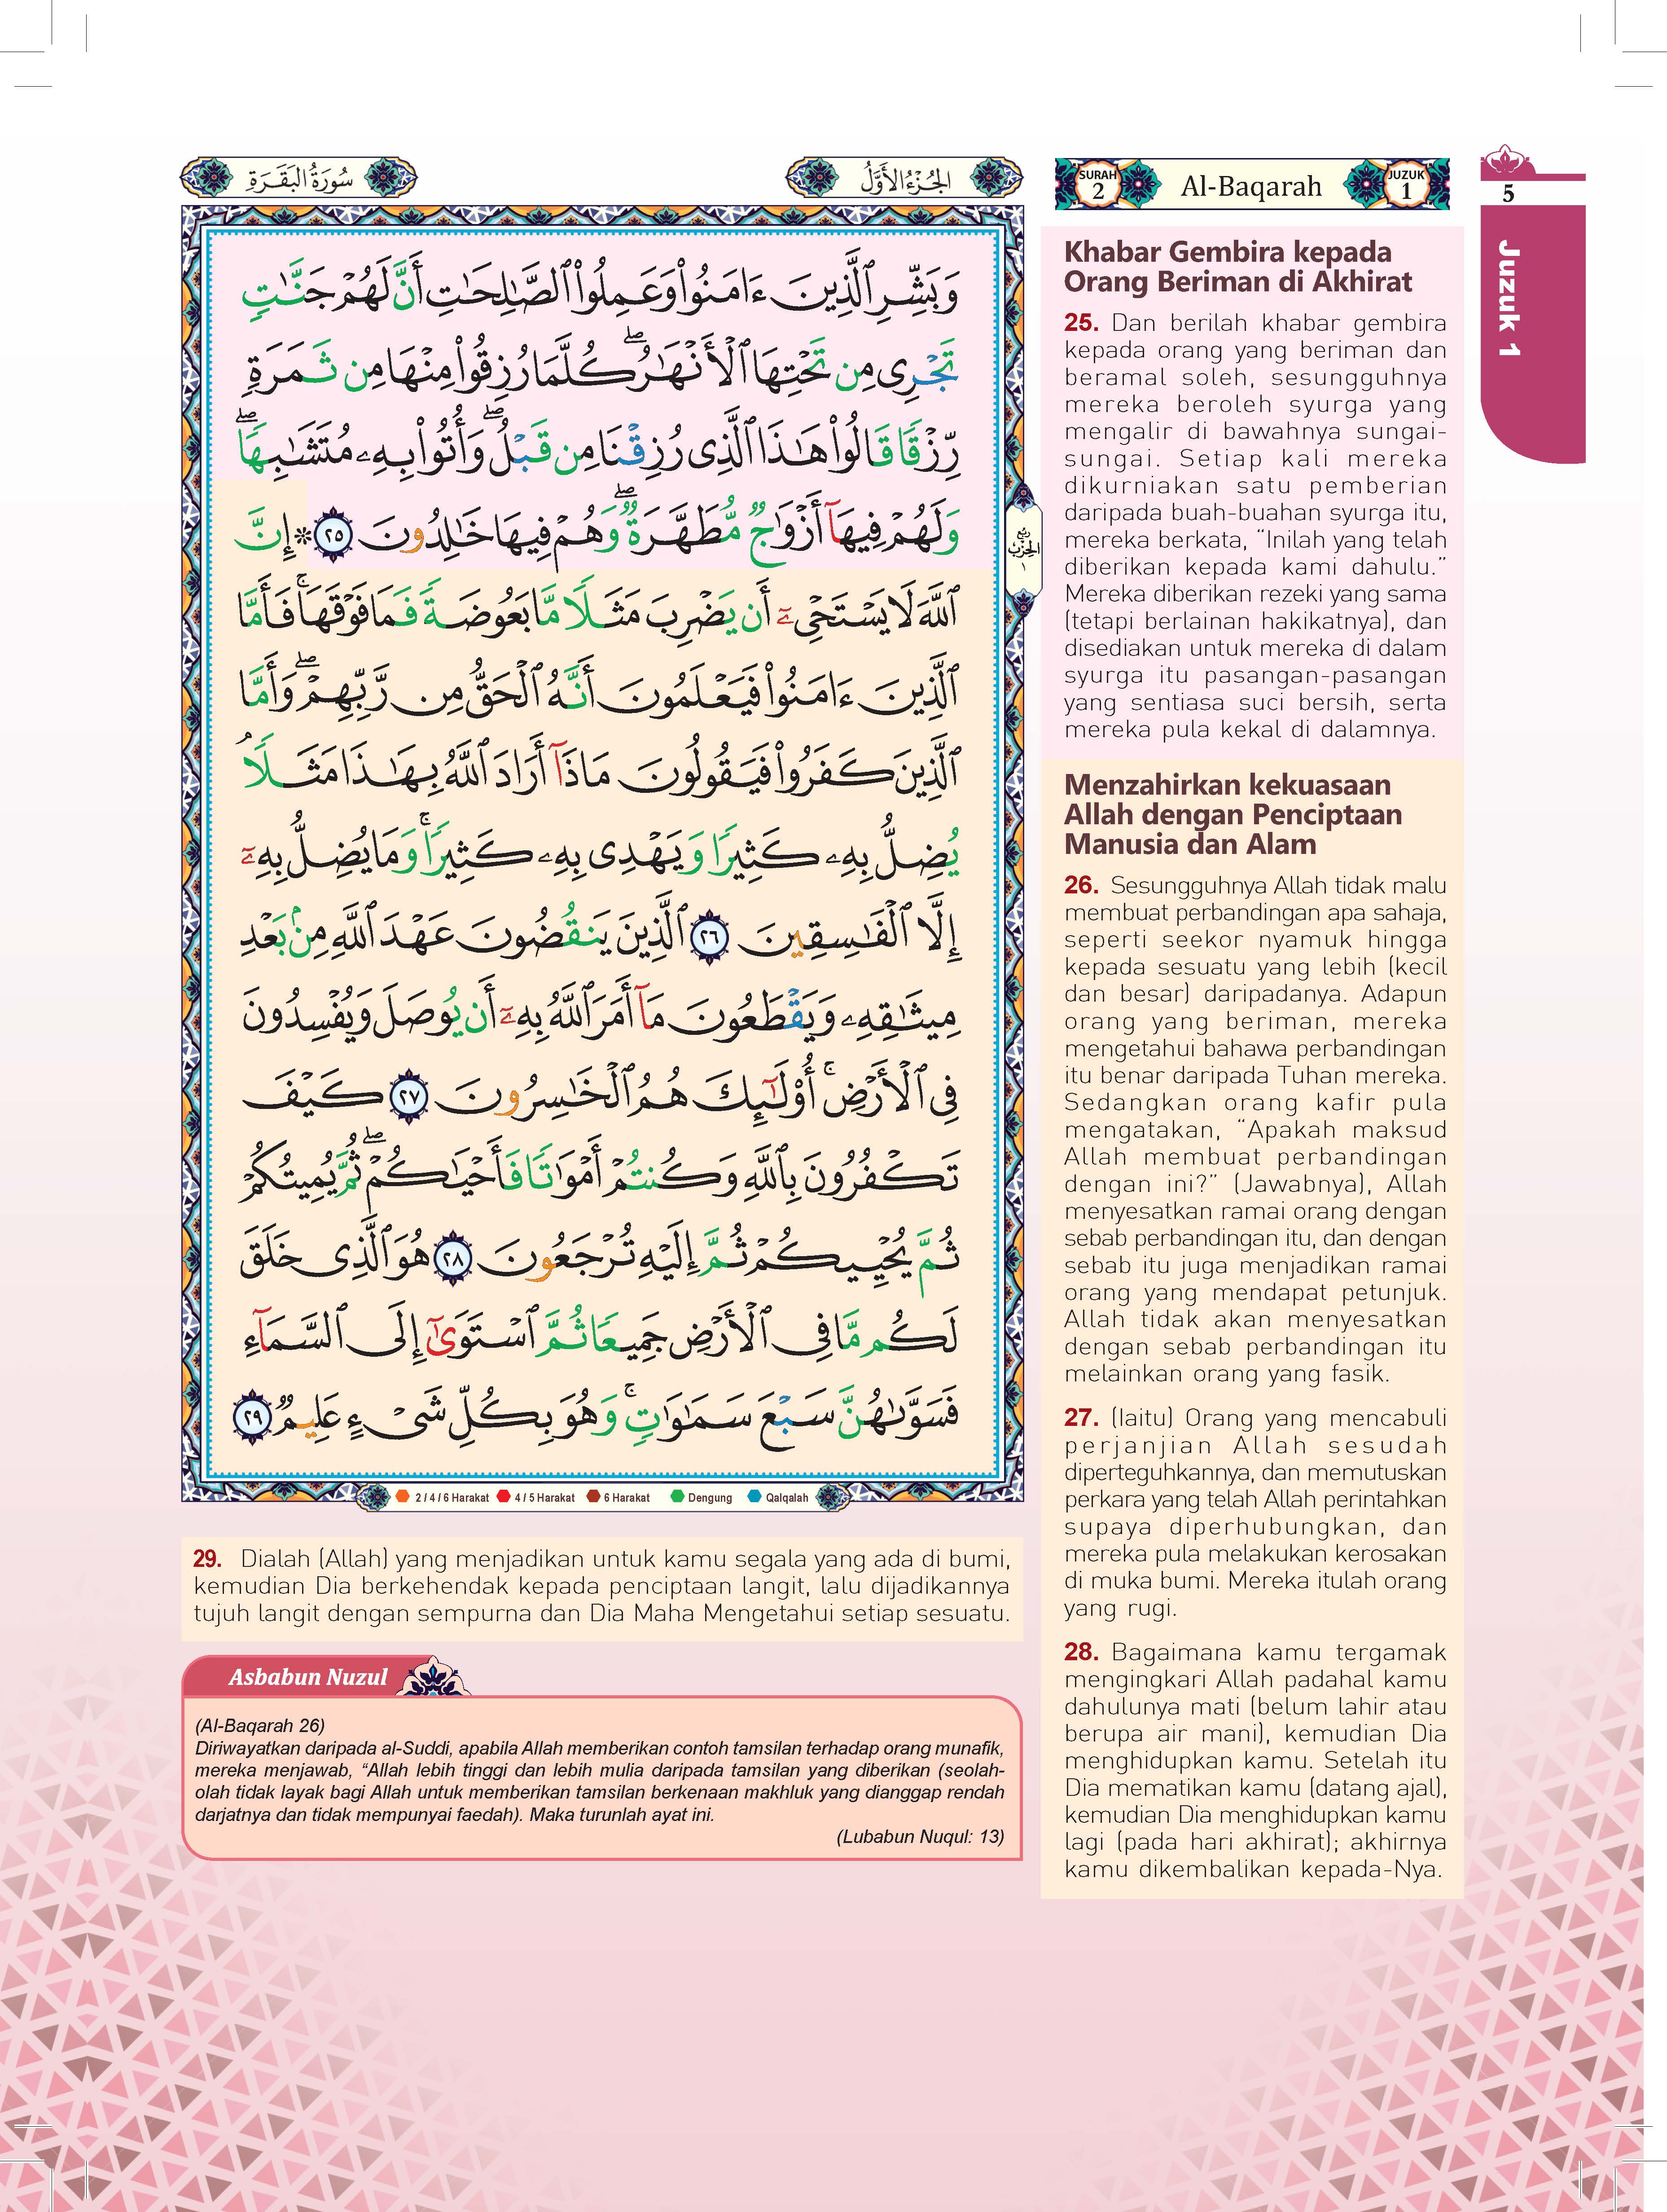 سُورَةُ البَقَرَةِ
الجُزْءُ الأَوَّلُ
SURAH
2
Al-Baqarah
JUZUK
1
5
Juzuk 1
وَبَشِّرِ ٱلَّذِينَ ءَامَنُواْ وَعَمِلُواْ ٱلصَّـٰلِحَـٰتِ أَنَّ لَهُمْ جَنَّـٰتٍ
تَجْرِى مِن تَحْتِهَا ٱلْأَنْهَـٰرُ ۖ كُلَّمَا رُزِقُواْ مِنْهَا مِن ثَمَرَةٍ
رِّزْقًا قَالُواْ هَـٰذَا ٱلَّذِى رُزِقْنَا مِن قَبْلُ ۖ وَأُتُواْ بِهِۦ مُتَشَـٰبِهًا ۖ
وَلَهُمْ فِيهَآ أَزْوَٰجٌ مُّطَهَّرَةٌ ۖ وَهُمْ فِيهَا خَـٰلِدُونَ ٢٥ * إِنَّ
ٱللَّهَ لَا يَسْتَحْىِۦٓ أَن يَضْرِبَ مَثَلًا مَّا بَعُوضَةً فَمَا فَوْقَهَا ۚ فَأَمَّا
ٱلَّذِينَ ءَامَنُواْ فَيَعْلَمُونَ أَنَّهُ ٱلْحَقُّ مِن رَّبِّهِمْ ۖ وَأَمَّا
ٱلَّذِينَ كَفَرُواْ فَيَقُولُونَ مَاذَآ أَرَادَ ٱللَّهُ بِهَـٰذَا مَثَلًا ۘ
يُضِلُّ بِهِۦ كَثِيرًا وَيَهْدِى بِهِۦ كَثِيرًا ۚ وَمَا يُضِلُّ بِهِۦٓ
إِلَّا ٱلْفَـٰسِقِينَ ٢٦ ٱلَّذِينَ يَنقُضُونَ عَهْدَ ٱللَّهِ مِنۢ بَعْدِ
مِيثَـٰقِهِۦ وَيَقْطَعُونَ مَآ أَمَرَ ٱللَّهُ بِهِۦٓ أَن يُوصَلَ وَيُفْسِدُونَ
فِى ٱلْأَرْضِ ۚ أُوْلَـٰٓئِكَ هُمُ ٱلْخَـٰسِرُونَ ٢٧ كَيْفَ
تَكْفُرُونَ بِٱللَّهِ وَكُنتُمْ أَمْوَٰتًا فَأَحْيَـٰكُمْ ۖ ثُمَّ يُمِيتُكُمْ
ثُمَّ يُحْيِيكُمْ ثُمَّ إِلَيْهِ تُرْجَعُونَ ٢٨ هُوَ ٱلَّذِى خَلَقَ
لَكُم مَّا فِى ٱلْأَرْضِ جَمِيعًا ثُمَّ ٱسْتَوَىٰٓ إِلَى ٱلسَّمَآءِ
فَسَوَّىٰهُنَّ سَبْعَ سَمَـٰوَٰتٍ ۚ وَهُوَ بِكُلِّ شَىْءٍ عَلِيمٌ ٢٩
ربع
الحزب
١
2 / 4 / 6 Harakat 4 / 5 Harakat 6 Harakat Dengung Qalqalah
Khabar Gembira kepada
Orang Beriman di Akhirat
25. Dan berilah khabar gembira
kepada orang yang beriman dan
beramal soleh, sesungguhnya
mereka beroleh syurga yang
mengalir di bawahnya sungai-
sungai. Setiap kali mereka
dikurniakan satu pemberian
daripada buah-buahan syurga itu,
mereka berkata, “Inilah yang telah
diberikan kepada kami dahulu.”
Mereka diberikan rezeki yang sama
(tetapi berlainan hakikatnya), dan
disediakan untuk mereka di dalam
syurga itu pasangan-pasangan
yang sentiasa suci bersih, serta
mereka pula kekal di dalamnya.
Menzahirkan kekuasaan
Allah dengan Penciptaan
Manusia dan Alam
26. Sesungguhnya Allah tidak malu
membuat perbandingan apa sahaja,
seperti seekor nyamuk hingga
kepada sesuatu yang lebih (kecil
dan besar) daripadanya. Adapun
orang yang beriman, mereka
mengetahui bahawa perbandingan
itu benar daripada Tuhan mereka.
Sedangkan orang kafir pula
mengatakan, “Apakah maksud
Allah membuat perbandingan
dengan ini?” (Jawabnya), Allah
menyesatkan ramai orang dengan
sebab perbandingan itu, dan dengan
sebab itu juga menjadikan ramai
orang yang mendapat petunjuk.
Allah tidak akan menyesatkan
dengan sebab perbandingan itu
melainkan orang yang fasik.
27. (Iaitu) Orang yang mencabuli
perjanjian Allah sesudah
diperteguhkannya, dan memutuskan
perkara yang telah Allah perintahkan
supaya diperhubungkan, dan
mereka pula melakukan kerosakan
di muka bumi. Mereka itulah orang
yang rugi.
28. Bagaimana kamu tergamak
mengingkari Allah padahal kamu
dahulunya mati (belum lahir atau
berupa air mani), kemudian Dia
menghidupkan kamu. Setelah itu
Dia mematikan kamu (datang ajal),
kemudian Dia menghidupkan kamu
lagi (pada hari akhirat); akhirnya
kamu dikembalikan kepada-Nya.
29. Dialah (Allah) yang menjadikan untuk kamu segala yang ada di bumi,
kemudian Dia berkehendak kepada penciptaan langit, lalu dijadikannya
tujuh langit dengan sempurna dan Dia Maha Mengetahui setiap sesuatu.
Asbabun Nuzul
(Al-Baqarah 26)
Diriwayatkan daripada al-Suddi, apabila Allah memberikan contoh tamsilan terhadap orang munafik,
mereka menjawab, “Allah lebih tinggi dan lebih mulia daripada tamsilan yang diberikan (seolah-
olah tidak layak bagi Allah untuk memberikan tamsilan berkenaan makhluk yang dianggap rendah
darjatnya dan tidak mempunyai faedah). Maka turunlah ayat ini.
(Lubabun Nuqul: 13)